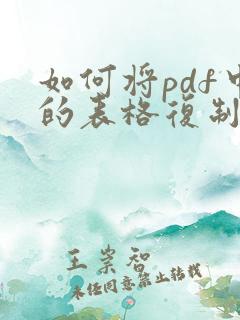 如何将pdf中
的表格复制
王崇智
未经同意禁止转载